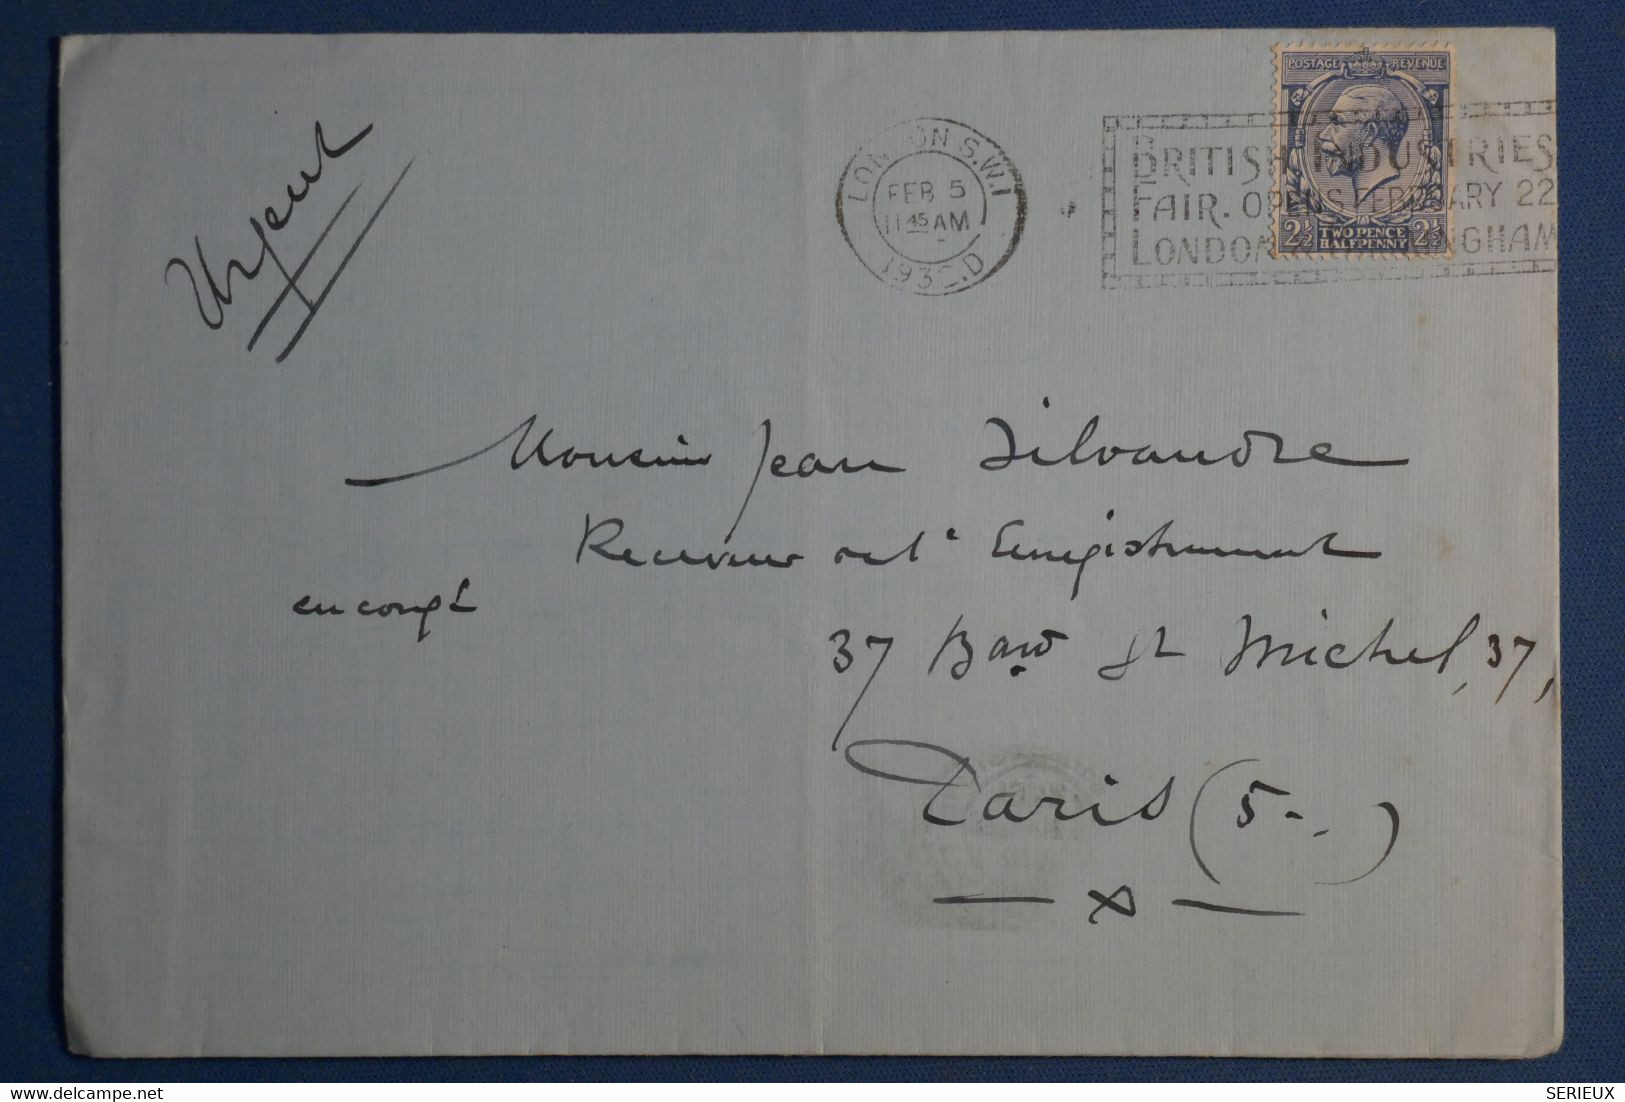 Urgent
LONDON S.W.1
FEB 5
11 45 AM
193 .D
BRITISH INDUSTRIES
FAIR. OPENS FEBRUARY 22
LONDON BIRMINGHAM
POSTAGE REVENUE
2½ TWO PENCE HALFPENNY 2½
Monsieur Jean Silvandre
Receveur de l'Enregistrement
en congé
37 Bard St Michel, 37,
Paris (5-.)
SERIEUX